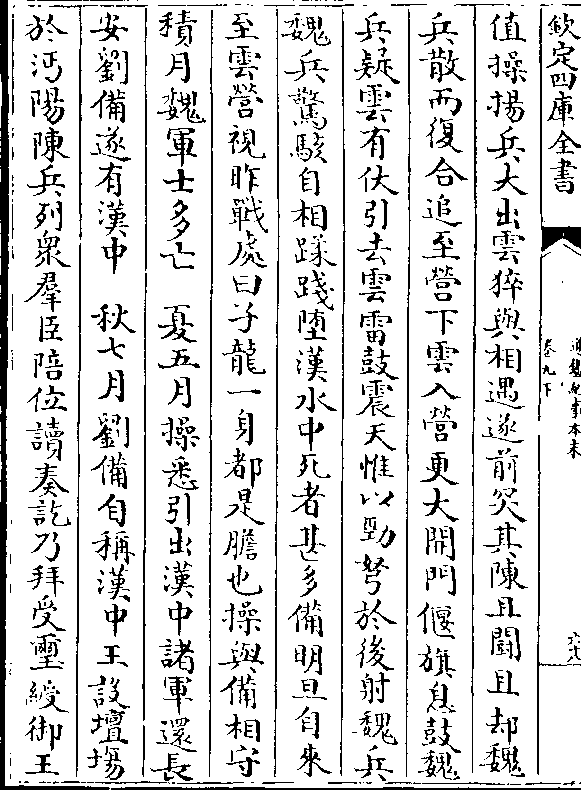 欽定四庫全書
通鑑紀事本末
卷九下
値操揚兵大出雲猝與相遇遂前突其陳且鬭且却魏
兵散而復合追至營下雲入營更大開門偃旗息鼓魏
兵疑雲有伏引去雲雷鼓震天惟以勁弩於後射魏兵
魏兵驚駭自相蹂踐墮漢水中死者甚多備明旦自來
至雲營視昨戰處曰子龍一身都是膽也操與備相守
積月魏軍士多亡　夏五月操悉引出漢中諸軍還長
安劉備遂有漢中　秋七月劉備自稱漢中王設壇場
於沔陽陳兵列衆羣臣陪位讀奏訖乃拜受璽綬御王